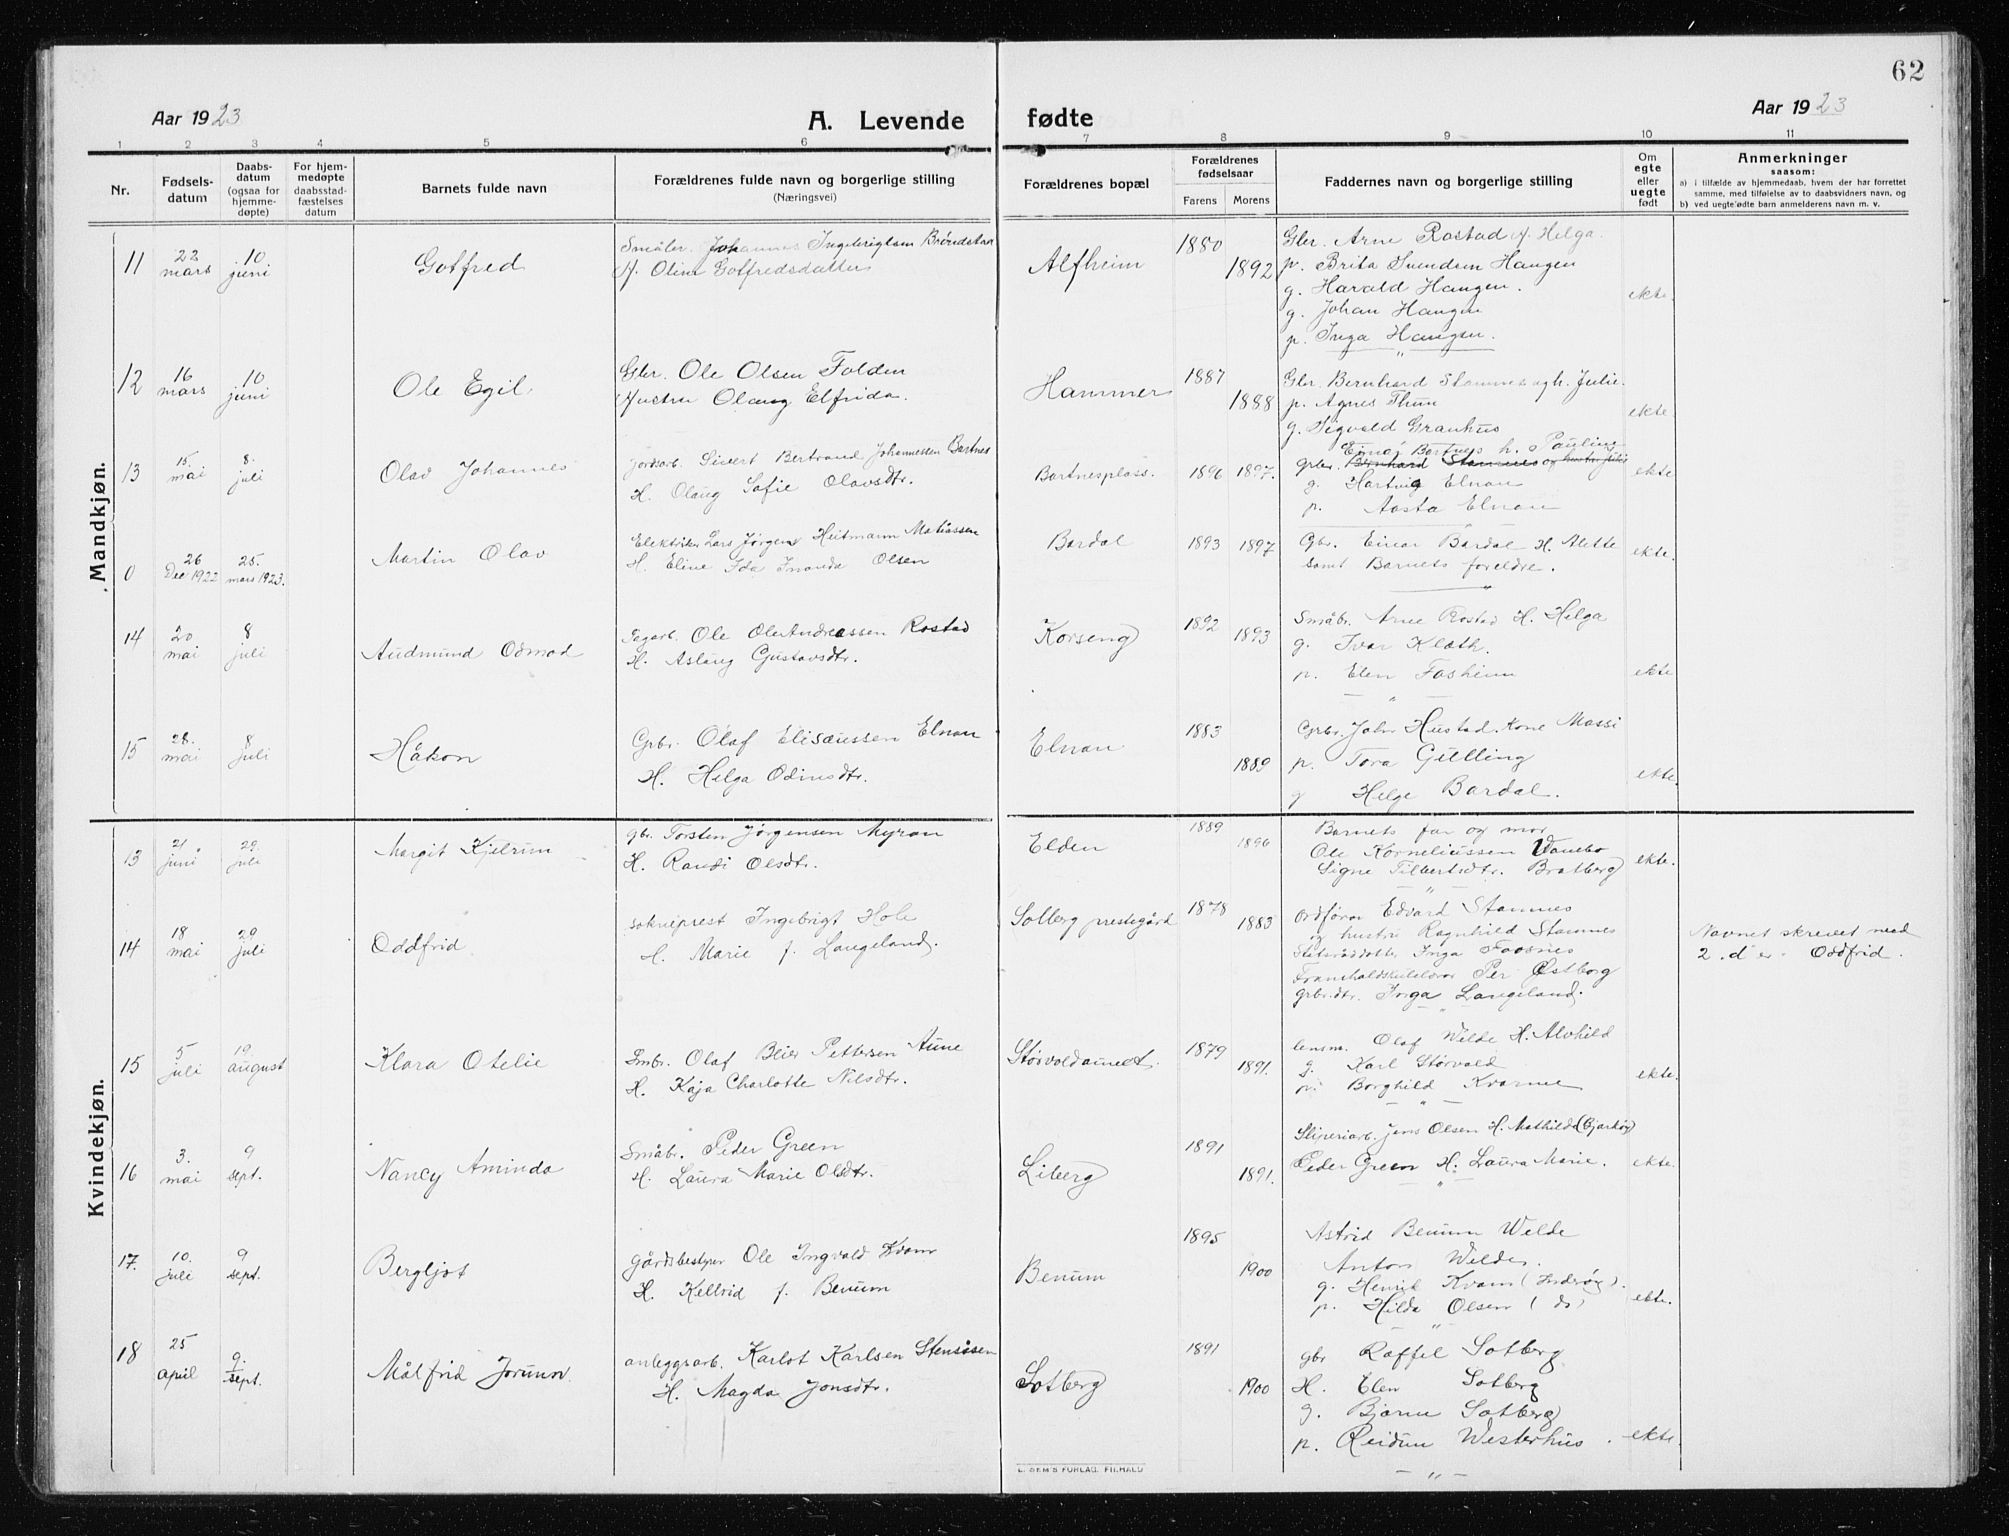 62
Aar 1923
A. Levende fødte
Aar 1923
1 2 3 4 5 6 7 8 9 10 11
Nr.
Fødsels-
datum
Daabs-
datum
(ogsaa for
hjemme-
døpte)
For hjem-
medøpte
daabsstad-
fæstelses
datum
Barnets fulde navn
Forældrenes fulde navn og borgerlige stilling
(Næringsvei)
Forældrenes bopæl
Forældrenes
fødselsaar
Farens Morens
Faddernes navn og borgerlige stilling
Om
egte
eller
uegte
født
Anmerkninger
saasom:
a) i tilfælde av hjemmedaab, hvem der har forrettet
samme, med tilføielse av to daabsvidners navn, og
b) ved uegte fødte barn anmelderens navn m. v.
Mandkjøn.
11 22 mars 10 juni
Gotfred
Johannes Ingebrigtsen
H. Oline Gotfredsdatter
Alfheim
1880 1892
Gbr. Arne Rostad H. Helga.
p. Brita Svendsen Haugen
g. Harald Haugen.
g. Johan Haugen
p. Inga Haugen.
ekte.
12 16 mars 10 juni
Ole Egil
Gbr. Ole Olsen Folden
Hustru Olaug Elfrida.
Hammer
1887 1888
Gbr. Bernhard Stamnes og h. Julie.
p. Agnes Thun
g. Sigvald Granhus
ekte
13 15. mai 8. juli
Olav Johannes
jordarb. Sivert Bertrand Johannessen Bartnes
H. Olaug Sofie Olavsdtr.
Bartnesplass.
1896 1897.
Einar Bartnes h. Pauline
grbr. Bernhard Stamnes og hustru Julie
g. Hartvig Elnan
p. Aasta Elnan
ekte
0 26 Dec 1922 25. mars 1923.
Martin Olav
Elektriker Lars Jørgen Heitmann Matiassen
H. Eline Ida Olsen
Bardal
1893 1897
Gbr. Einar Bardal H. Alette
samt Barnets foreldre.
ekte.
14 20. mai 8 juli
Audmund Odmod
Ole OleAndreassen Rostad
H. Aslaug Gustavsdtr.
Korseng
1892 1893
Småbr. Arne Rostad H. Helga
g. Ivar Kleth.
p. Elen Fosheim
ekte
15 28. mai 8 juli
Håkon
Grbr. Olaf Elisæussen Elnan
H. Helga Odinsdtr.
Elnan
1883 1889
Grbr. John Hustad. Kone Massi
p. Tora Gilling
g Helge Bardal.
ekte
Kvindekjøn.
13 21 juni 29. juli
Margit Kjelrun
gbr. Torsten Jørgensen Myran
H. Randi Olsdtr.
Elden
1889 1896
Barnets far og mor
Ole Korneliussen Vanebo
Signe Tilbertsdtr. Bratberg
ekte.
14 18 mai 29 juli
Oddfrid
sokneprest Ingebrigt Hole
H. Marie f. Langeland.
Solberg prestegård
1878 1883
Ordfører Edvard Stamnes
og hustru Ragnhild Stamnes
Inga Faasnes
Per Østborg
grbr.dtr. Inga Langeland.
Navnet skrevet med
2 . d er. Oddfrid.
15 5 juli 19 august
Klara Otelie
Smbr. Olaf Beier Pettersen Aune
H. Kaja Charlotte Nilsdtr.
1879 1891.
lensm. Olaf Welde H. Alvhild
g. Karl Størvold
p. Borghild Kvarme
ekte.
16 3. mai 9 sept.
Nancy Aminda
Småbr. Peder Green
H. Laura Marie Olsdtr.
Liberg
1891 1891.
Sliperiarb. Jens Olsen H. Mathilde (Bjarkøy)
Peder Green H. Laura Marie.
ekte.
17. 10. juli 9 sept.
Bergljot
gårdsbestyrer Ole Ingvald Kvam
H. Kellrid f. Benum
Benum
1895 1900
Astrid Benum Welde
Anton Welde.
g. Henrik Kvam (Inderøy).
p. Hilda Olsen ( do )
ekte.
18 25 april 9 sept.
Målfrid Jorunn.
anleggsarb. Karlot Karlsen Stensåsen
H. Magda Jonsdtr.
Solberg
1891 1900
gbr Roffel Solberg
H. Elen Solberg
g. Bjarne Solberg
p. Reidun Westerhus.
ekte